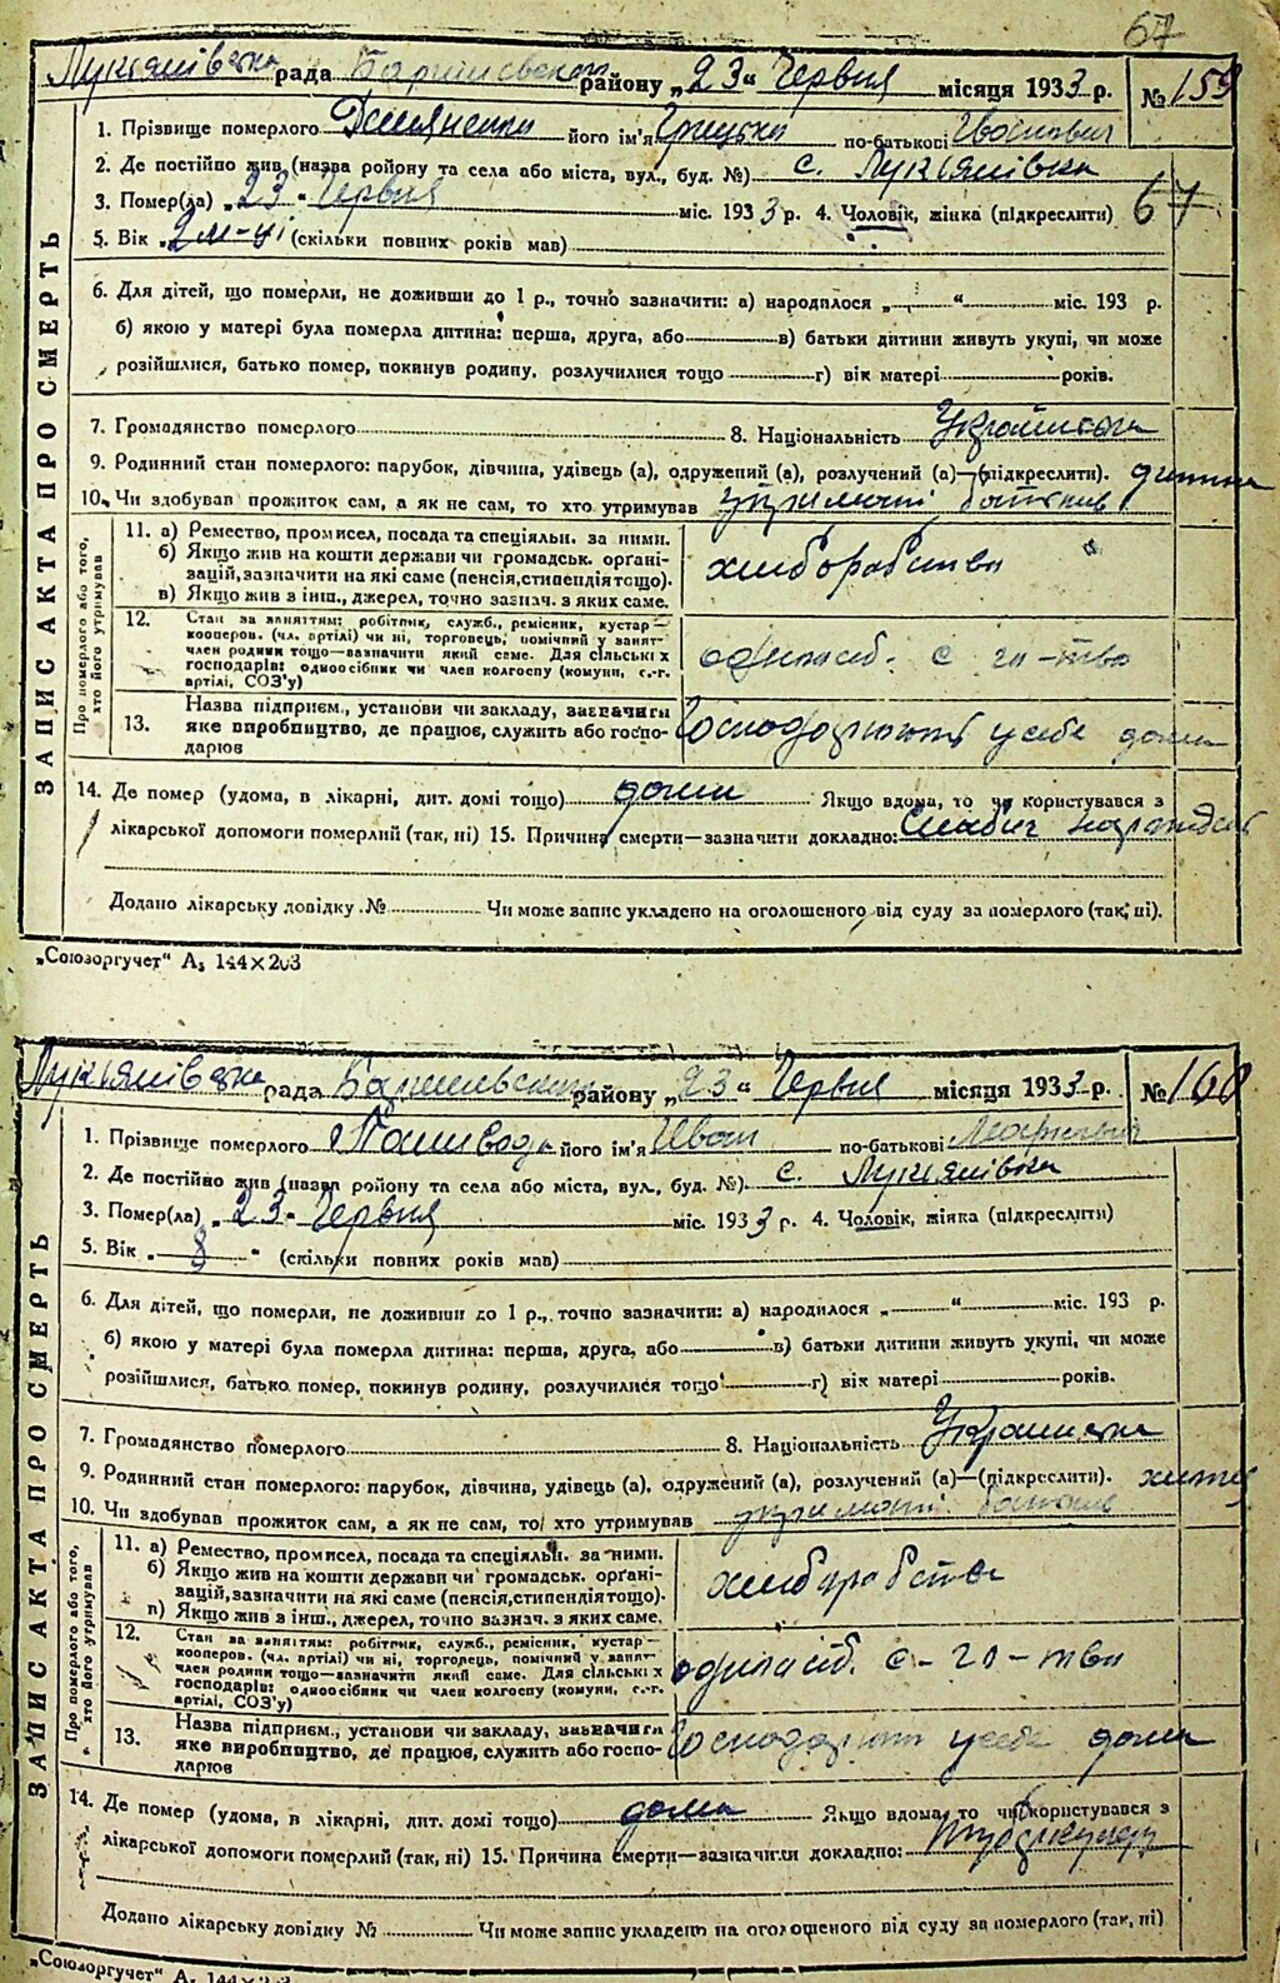 67
Лукьянівська рада Баришевського району „23“ Червня місяця 1933 р. № 159
1. Прізвище померлого Демяненко його ім'я Грицько по-батькові
2. Де постійно жив (назва району та села або міста, вул., буд. №) с. Лукьянівка
3. Помер(ла) „23“ Червня міс. 1933 р. 4. Чоловік, жінка (підкреслити) 67
5. Вік „2 м-ці (скільки повних років мав)
6. Для дітей, що померли, не доживши до 1 р., точно зазначити: а) народилося „ “ міс. 193 р.
б) якою у матері була померла дитина: перша, друга, або в) батьки дитини живуть укупі, чи може
розійшлися, батько помер, покинув родину, розлучилися тощо г) вік матері років.
7. Громадянство померлого 8. Національність Українська
9. Родинний стан померлого: парубок, дівчина, удівець (а), одружений (а), розлучений (а)—(підкреслити). дитина
10. Чи здобував прожиток сам, а як не сам, то хто утримував утриманні батьків
ЗАПИС АКТА ПРО СМЕРТЬ
Про померлого або того, хто його утримував
11. а) Ремество, промисел, посада та спеціяльн. за ними.
б) Якщо жив на кошти держави чи громадськ. органі-
зацій, зазначити на які саме (пенсія, стипендія тощо).
в) Якщо жив з інш., джерел, точно зазнач. з яких саме.
хліборобство
12. Стан за заняттям: робітник, служб., ремісник, кустар—
кооперов. (чл. артілі) чи ні, торговець, помічний у занят-
член родини тощо—зазначити який саме. Для сільських
господарів: одноосібник чи член колгоспу (комуни, с.-г.
артілі, СОЗ'у)
одноосіб. с го-тво
13. Назва підприєм., установи чи закладу, зазначити
яке виробництво, де працює, служить або госпо-
дарює
Господарюють у себе дома
14. Де помер (удома, в лікарні, дит. домі тощо) дома Якщо вдома, то чи користувався з
лікарської допомоги померлий (так, ні) 15. Причина смерти—зазначити докладно:
Додано лікарську довідку № Чи може запис укладено на оголошеного від суду за померлого (так, ні).
„Союзоргучет“ А5 144×203
Лукьянівська рада Баришевського району „23“ Червня місяця 1933 р. № 160
1. Прізвище померлого його ім'я Іван по-батькові
2. Де постійно жив (назва району та села або міста, вул., буд. №) с. Лукьянівка
3. Помер(ла) „23“ Червня міс. 1933 р. 4. Чоловік, жінка (підкреслити)
5. Вік „8“ (скільки повних років мав)
6. Для дітей, що померли, не доживши до 1 р., точно зазначити: а) народилося „ “ міс. 193 р.
б) якою у матері була померла дитина: перша, друга, або в) батьки дитини живуть укупі, чи може
розійшлися, батько помер, покинув родину, розлучилися тощо г) вік матері років.
7. Громадянство померлого 8. Національність Українська
9. Родинний стан померлого: парубок, дівчина, удівець (а), одружений (а), розлучений (а)—(підкреслити).
10. Чи здобував прожиток сам, а як не сам, то хто утримував утриманні батьків
ЗАПИС АКТА ПРО СМЕРТЬ
Про померлого або того, хто його утримував
11. а) Ремество, промисел, посада та спеціяльн. за ними.
б) Якщо жив на кошти держави чи громадськ. органі-
зацій, зазначити на які саме (пенсія, стипендія тощо).
в) Якщо жив з інш., джерел, точно зазнач. з яких саме.
хліборобство
12. Стан за заняттям: робітник, служб., ремісник, кустар—
кооперов. (чл. артілі) чи ні, торговець, помічний у занят-
член родини тощо—зазначити який саме. Для сільських
господарів: одноосібник чи член колгоспу (комуни, с.-г.
артілі, СОЗ'у)
одноосіб. с-го-тво
13. Назва підприєм., установи чи закладу, зазначити
яке виробництво, де працює, служить або госпо-
дарює
Господарюють у себе дома
14. Де помер (удома, в лікарні, дит. домі тощо) дома Якщо вдома, то чи користувався з
лікарської допомоги померлий (так, ні) 15. Причина смерти—зазначити докладно:
Додано лікарську довідку № Чи може запис укладено на оголошеного від суду за померлого (так, ні)
„Союзоргучет“ А5 144×203